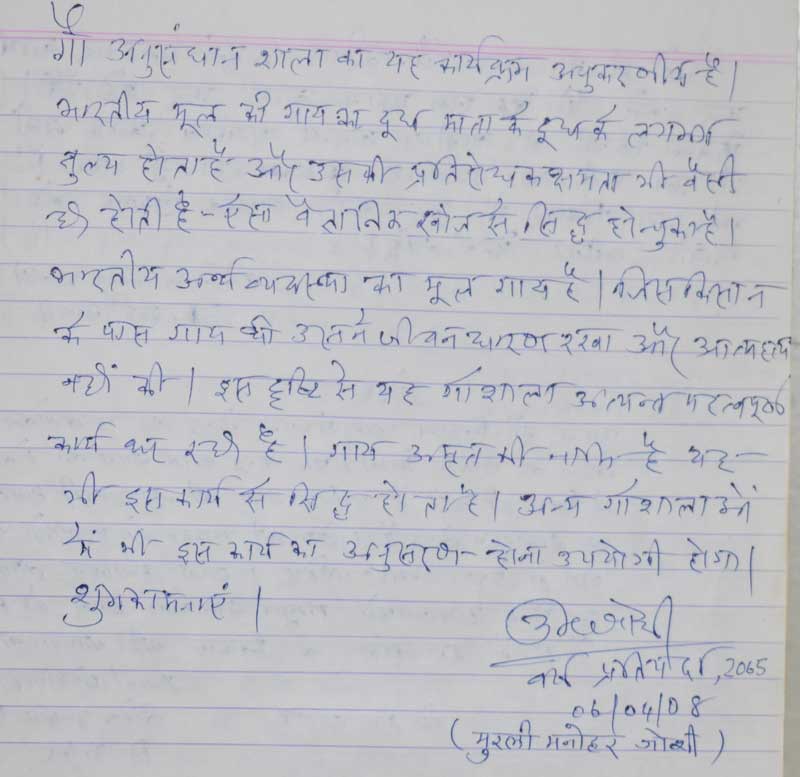 गौ अनुसंधान शाला का यह कार्यक्रम अनुकरणीय है।
भारतीय मूल की गाय का दूध माता के दूध के लगभग
तुल्य होता है और उसकी प्रतिरोधक क्षमता भी वैसी
ही होती है - ऐसा वैज्ञानिक खोज से सिद्ध हो चुका है।
भारतीय अर्थव्यवस्था का मूल गाय है। जिस किसान
के पास गाय थी उसने जीवन धारण रखा और आत्महत्या
नहीं की। इस दृष्टि से यह गौशाला अत्यन्त महत्वपूर्ण
कार्य कर रही है। गाय अमृत की नाभि है यह
भी इस कार्य से सिद्ध होता है। अन्य गौशालाओं
में भी इस कार्य का अनुसरण होना उपयोगी होगा।
शुभकामनाएं।
वर्ष प्रतिपदा, 2065
06/04/08
(मुरली मनोहर जोशी)